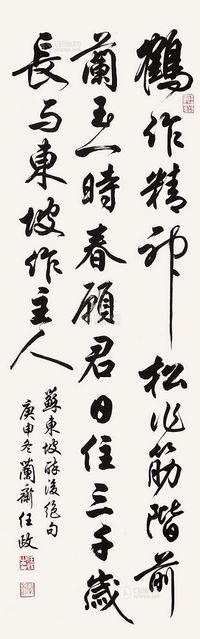 鶴作精神松作筋階前
蘭玉一時春願君日住三千歲
長与東坡作主人
蘇東坡醉後絕句
庚申冬蘭齋任政